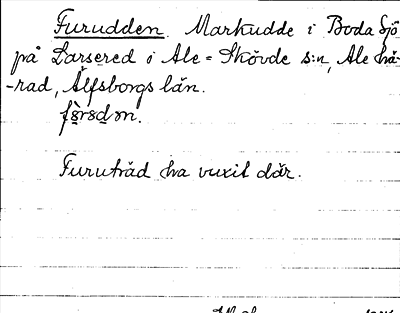 Furudden. Markudde i Boda Sjö
på Larsered i Ale-Skövde s:n, Ale hä-
-rad, Älfsborgs län.
Furuträd ha vuxit där.